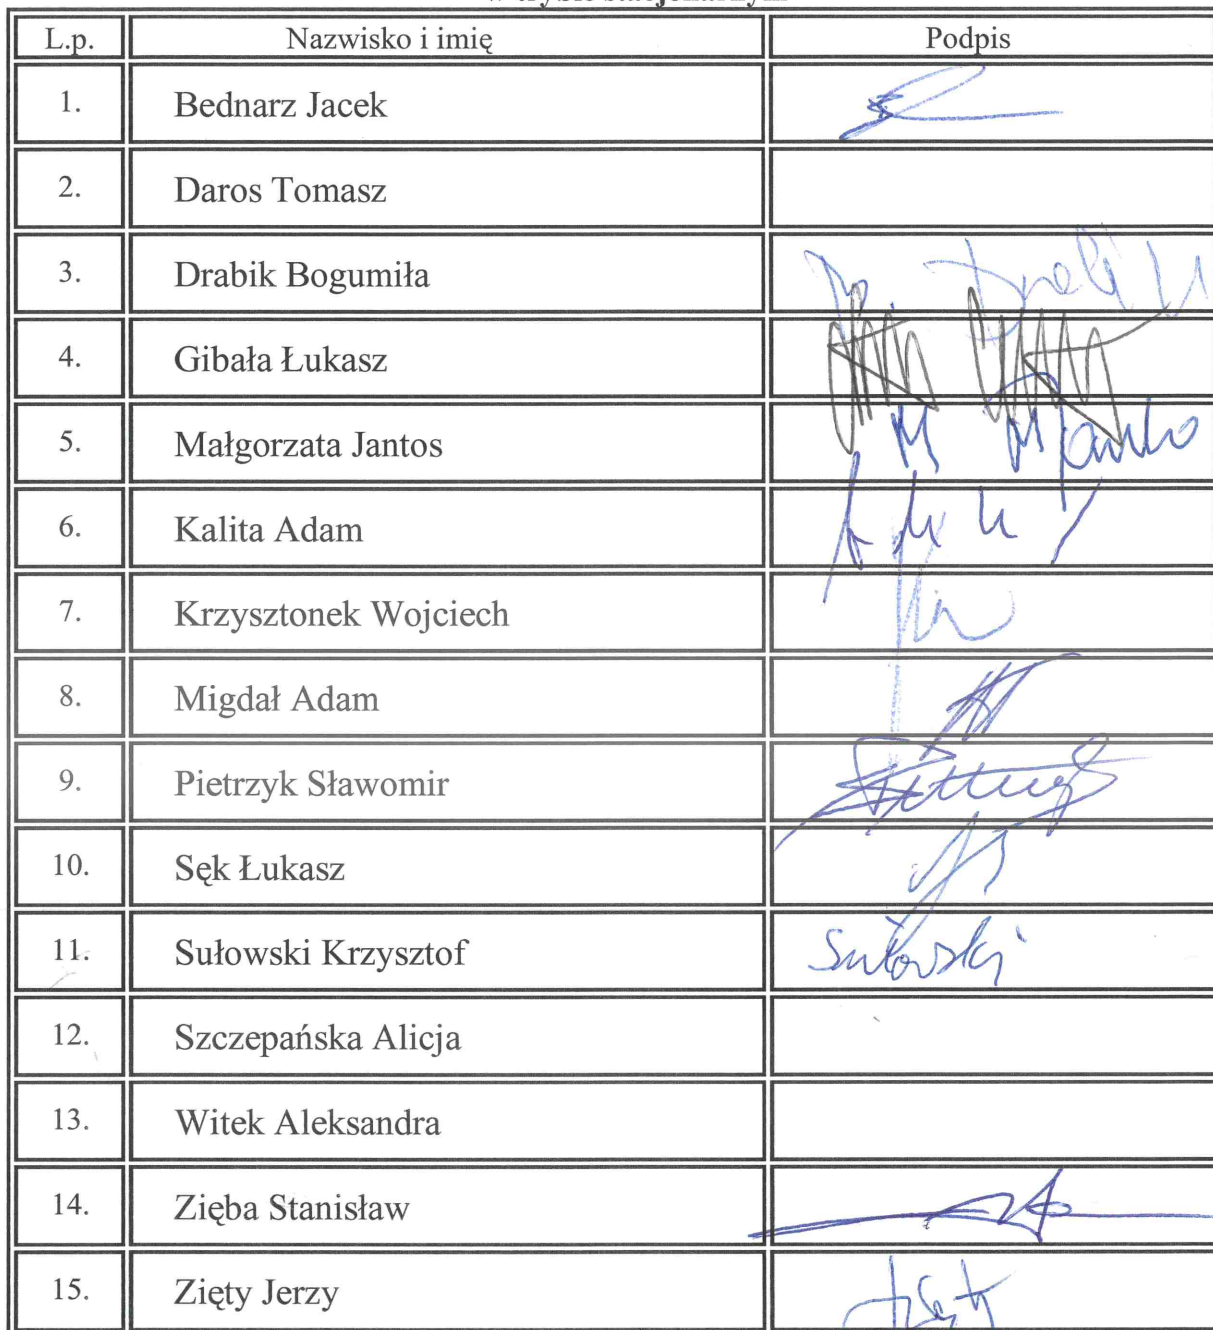 w trybie stacjonarnym
L.p. Nazwisko i imię Podpis
1. Bednarz Jacek
2. Daros Tomasz
3. Drabik Bogumiła
4. Gibała Łukasz
5. Małgorzata Jantos
6. Kalita Adam
7. Krzysztonek Wojciech
8. Migdał Adam
9. Pietrzyk Sławomir
10. Sęk Łukasz
11. Sułowski Krzysztof Sułowski
12. Szczepańska Alicja
13. Witek Aleksandra
14. Zięba Stanisław
15. Zięty Jerzy